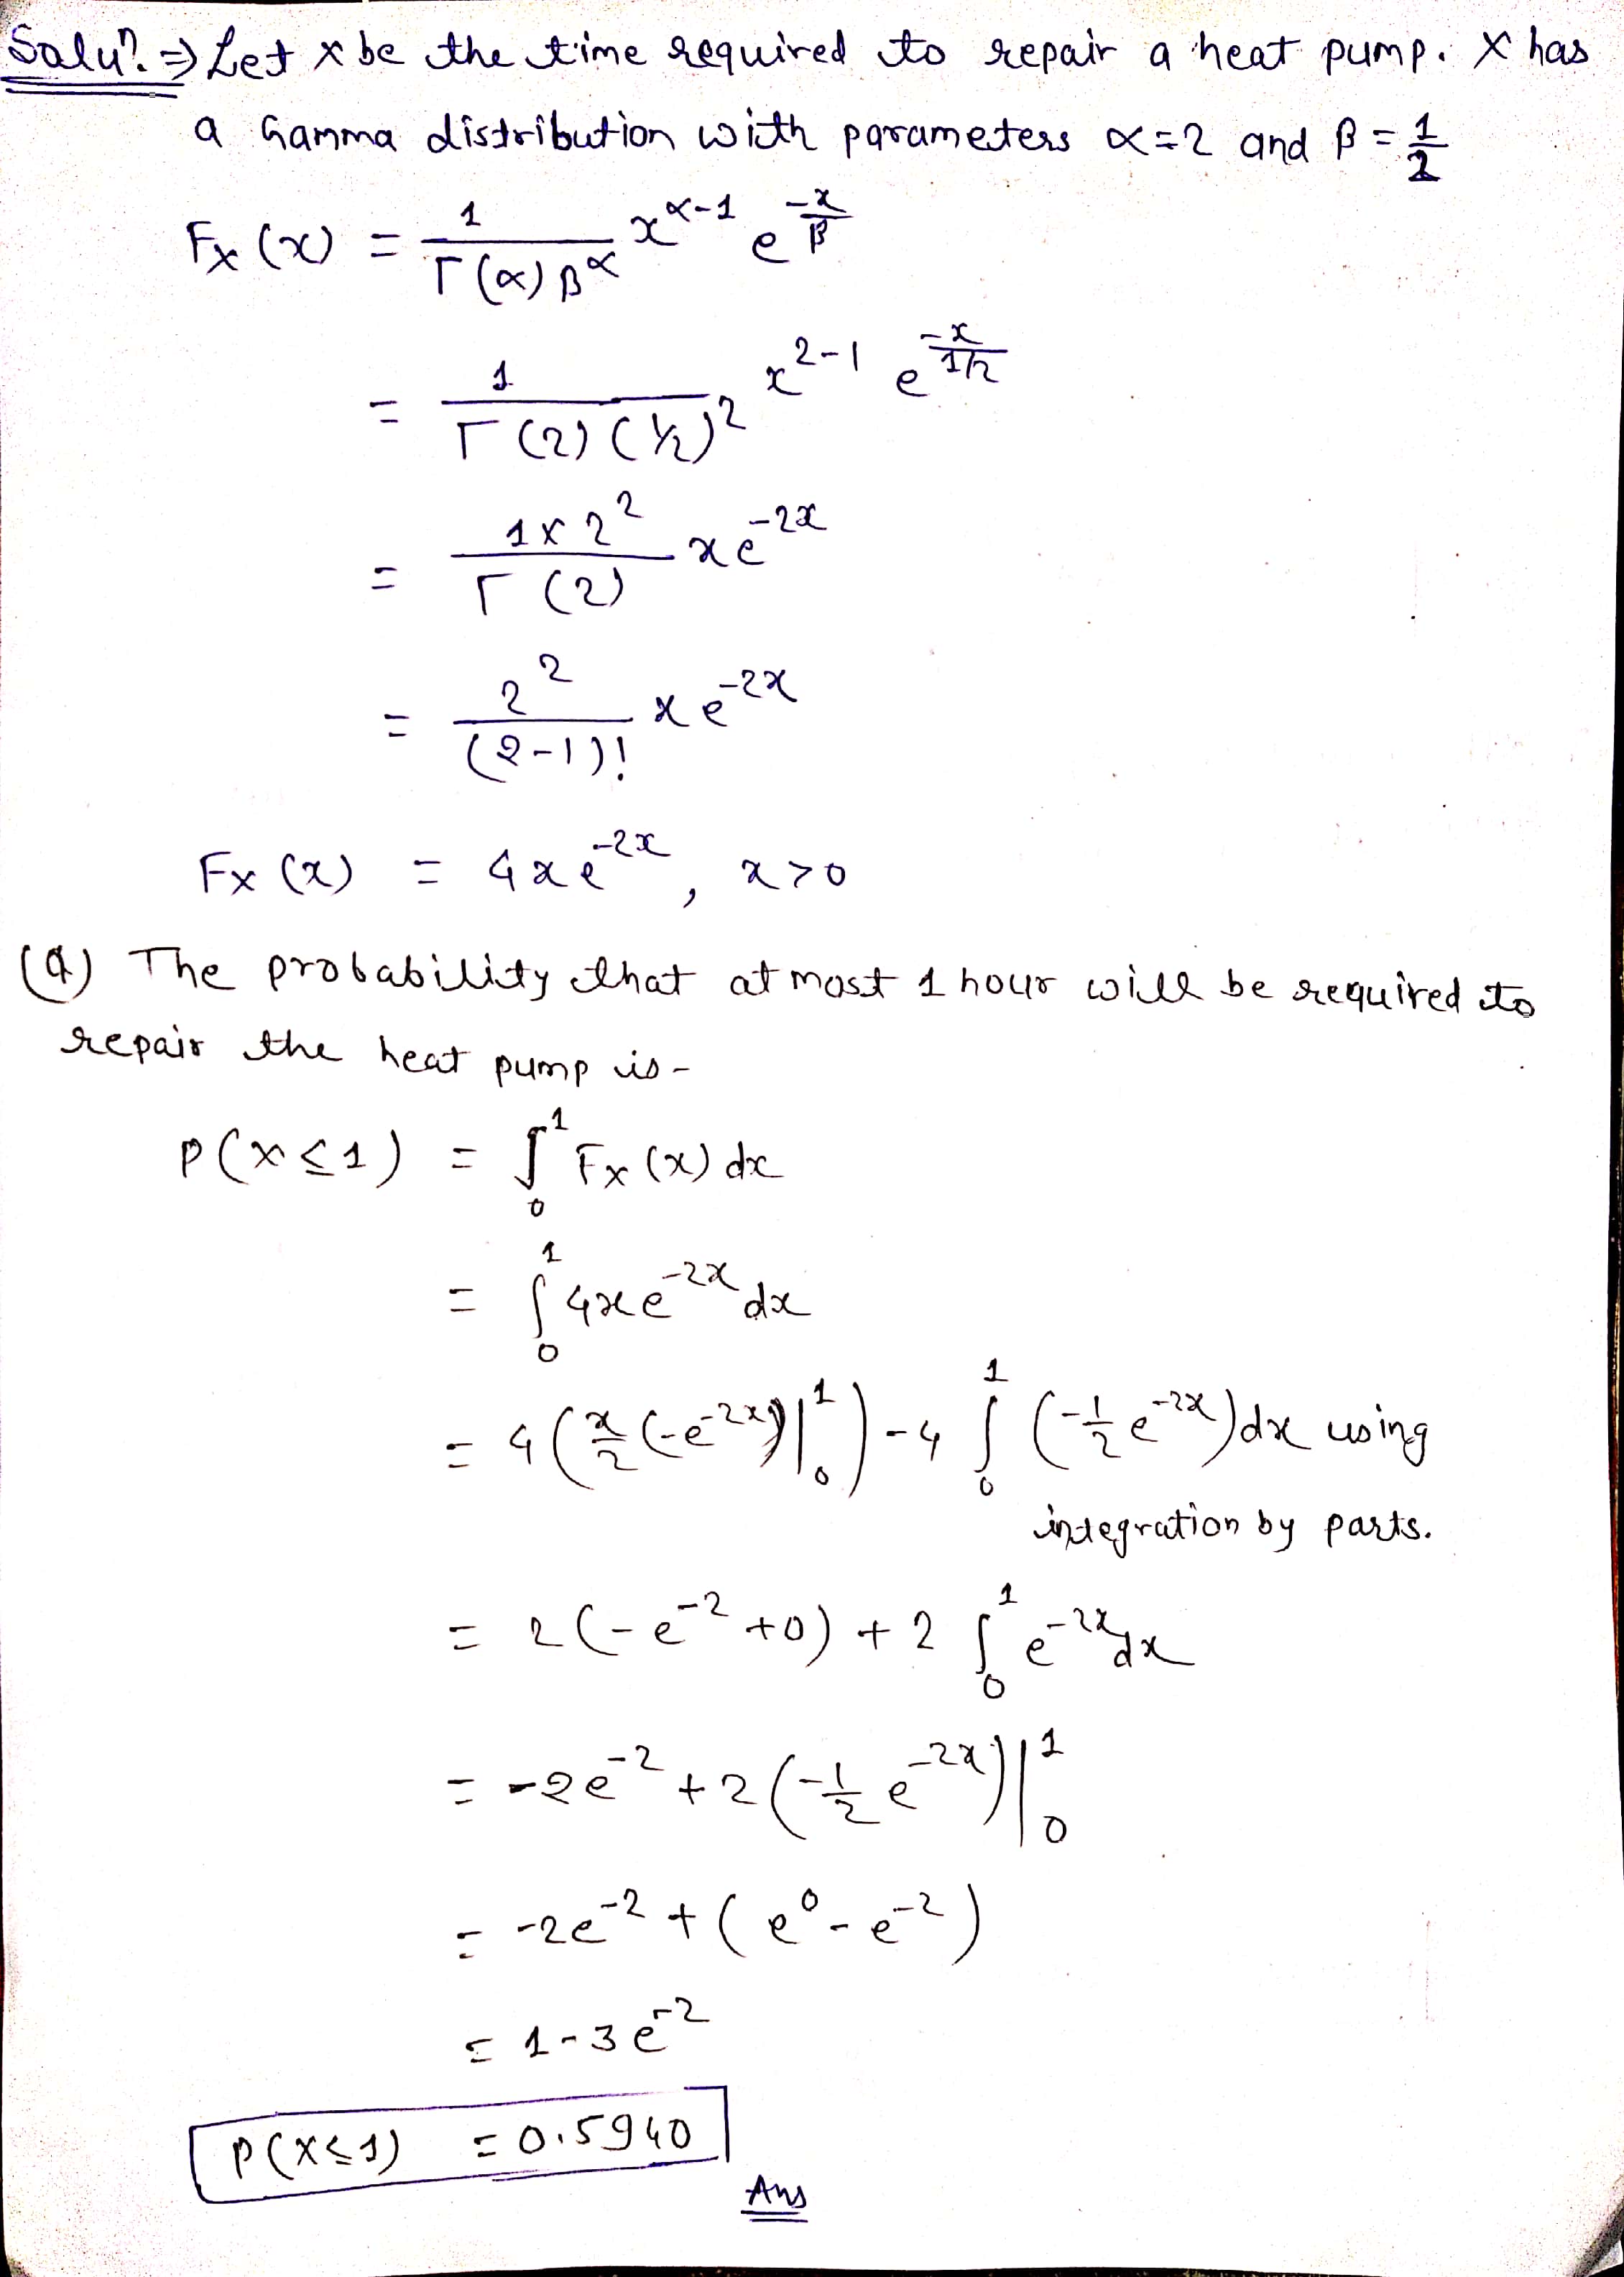 Solun. ⇒ Let x be the time required to repair a heat pump. X has
a Gamma distribution with parameters α=2 and β = 1/2
Fx (x) = 1/(Γ(α) β^α) x^(α-1) e^(-x/β)
= 1/(Γ(2) (1/2)^2) x^(2-1) e^(-x/(1/2))
= (1×2^2)/(Γ(2)) x e^(-2x)
= 2^2/((2-1)!) x e^(-2x)
Fx (x) = 4x e^(-2x), x>0
(a) The probability that at most 1 hour will be required to
repair the heat pump is-
P(x≤1) = ∫_0^1 Fx (x) dx
= ∫_0^1 4x e^(-2x) dx
= 4(x/2 (-e^(-2x))|_0^1) - 4 ∫_0^1 (-1/2 e^(-2x)) dx using
integration by parts.
= 2(-e^(-2) +0) + 2 ∫_0^1 e^(-2x) dx
= -2e^(-2) + 2(-1/2 e^(-2x))|_0^1
= -2e^(-2) + (e^0 - e^(-2))
= 1-3e^(-2)
P(X≤1) = 0.5940
Ans